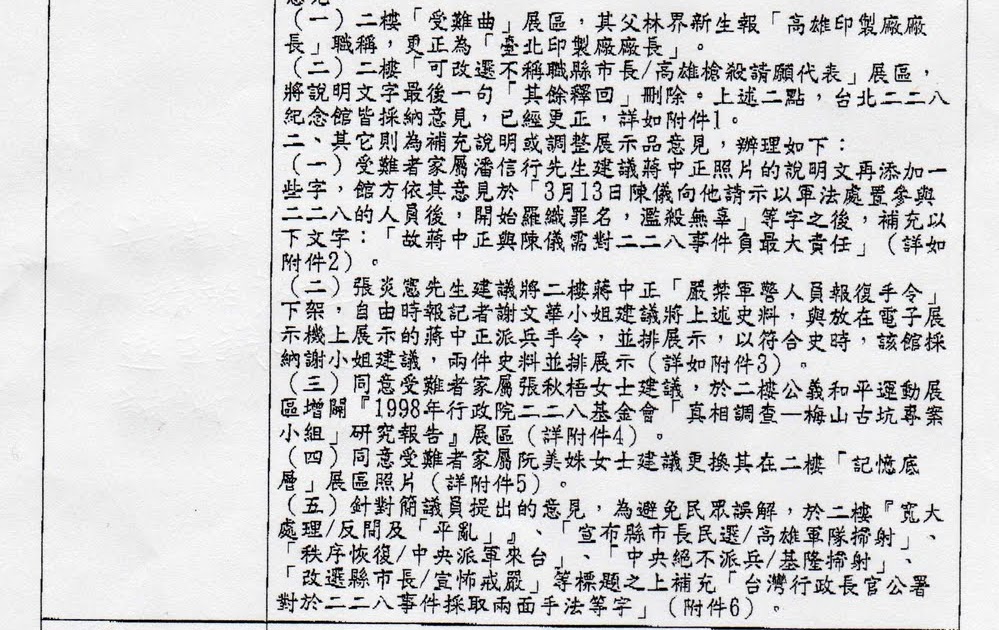 意見
（一）二樓「受難曲」展區，其父林界新生報「高雄印製廠廠
長」職稱，更正為「臺北印製廠廠長」。
（二）二樓「可改選不稱職縣市長/高雄槍殺請願代表」展區，
將說明文字最後一句「其餘釋回」刪除。上述二點，台北二二八
紀念館皆採納意見，已經更正，詳如附件1。
二、其它則為補充說明或調整展示品意見，辦理如下：
（一）受難者家屬潘信行先生建議蔣中正照片的說明文再添加一
些字，館方依其意見於「3月13日陳儀向他請示以軍法處置參與
二二八的人員後，開始羅織罪名，濫殺無辜」等字之後，補充以
下文字：「故蔣中正與陳儀需對二二八事件負最大責任」（詳如
附件2）。
（二）張炎憲先生建議將二樓蔣中正「嚴禁軍警人員報復手令」
下架，自由時報記者謝文華小姐建議將上述史料，與放在電子展
示機上展示的蔣中正派兵手令，並排展示，以符合史時，該館採
納謝小姐建議，兩件史料並排展示（詳如附件3）。
（三）同意受難者家屬張秋梧女士建議，於二樓公義和平運動展
區增開『1998年行政院二二八基金會「真相調查—梅山古坑專案
小組」研究報告』展區（詳附件4）。
（四）同意受難者家屬阮美姝女士建議更換其在二樓「記憶底
層」展區照片（詳附件5）。
（五）針對簡議員提出的意見，為避免民眾誤解，於二樓『寬大
處理/反間及「平亂」』、「宣布縣市長民選/高雄軍隊掃射」、
「秩序恢復/中央派軍來台」、「中央絕不派兵/基隆掃射」、
「改選縣市長/宣怖戒嚴」等標題之上補充「台灣行政長官公署
對於二二八事件採取兩面手法等字」（附件6）。